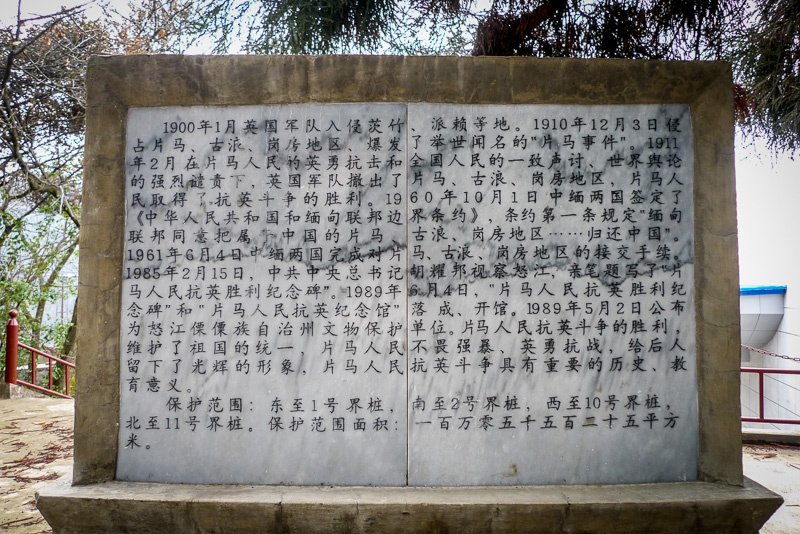 1900年1月英国军队入侵茨竹、派赖等地。1910年12月3日侵
占片马、古浪、岗房地区，爆发了举世闻名的“片马事件”。1911
年2月在片马人民的英勇抗击和全国人民的一致声讨、世界舆论
的强烈谴责下，英国军队撤出了片马、古浪、岗房地区，片马人
民取得了抗英斗争的胜利。1960年10月1日中缅两国签定了
《中华人民共和国和缅甸联邦边界条约》，条约第一条规定“缅甸
联邦同意把属于中国的片马、古浪、岗房地区……归还中国”。
1961年6月4日中缅两国完成对片马、古浪、岗房地区的接交手续。
1985年2月15日，中共中央总书记胡耀邦视察怒江，亲笔题写了“片
马人民抗英胜利纪念碑”。1989年6月4日，“片马人民抗英胜利纪
念碑”和“片马人民抗英纪念馆”落成、开馆。1989年5月2日公布
为怒江傈僳族自治州文物保护单位。片马人民抗英斗争的胜利，
维护了祖国的统一、片马人民不畏强暴、英勇抗战，给后人
留下了光辉的形象，片马人民抗英斗争具有重要的历史、教
育意义。
保护范围：东至1号界桩，南至2号界桩，西至10号界桩，
北至11号界桩。保护范围面积：一百万零五千五百二十五平方
米。